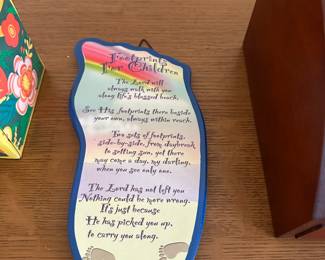 Footprints
For Children
The Lord will
always walk with you
along life's blessed beach.
See His footprints there beside
your own, always within reach.
Two sets of footprints,
side-by-side, from daybreak
to setting sun, yet there
may come a day, my darling,
when you see only one.
The Lord has not left you
Nothing could be more wrong.
It's just because
He has picked you up,
to carry you along.